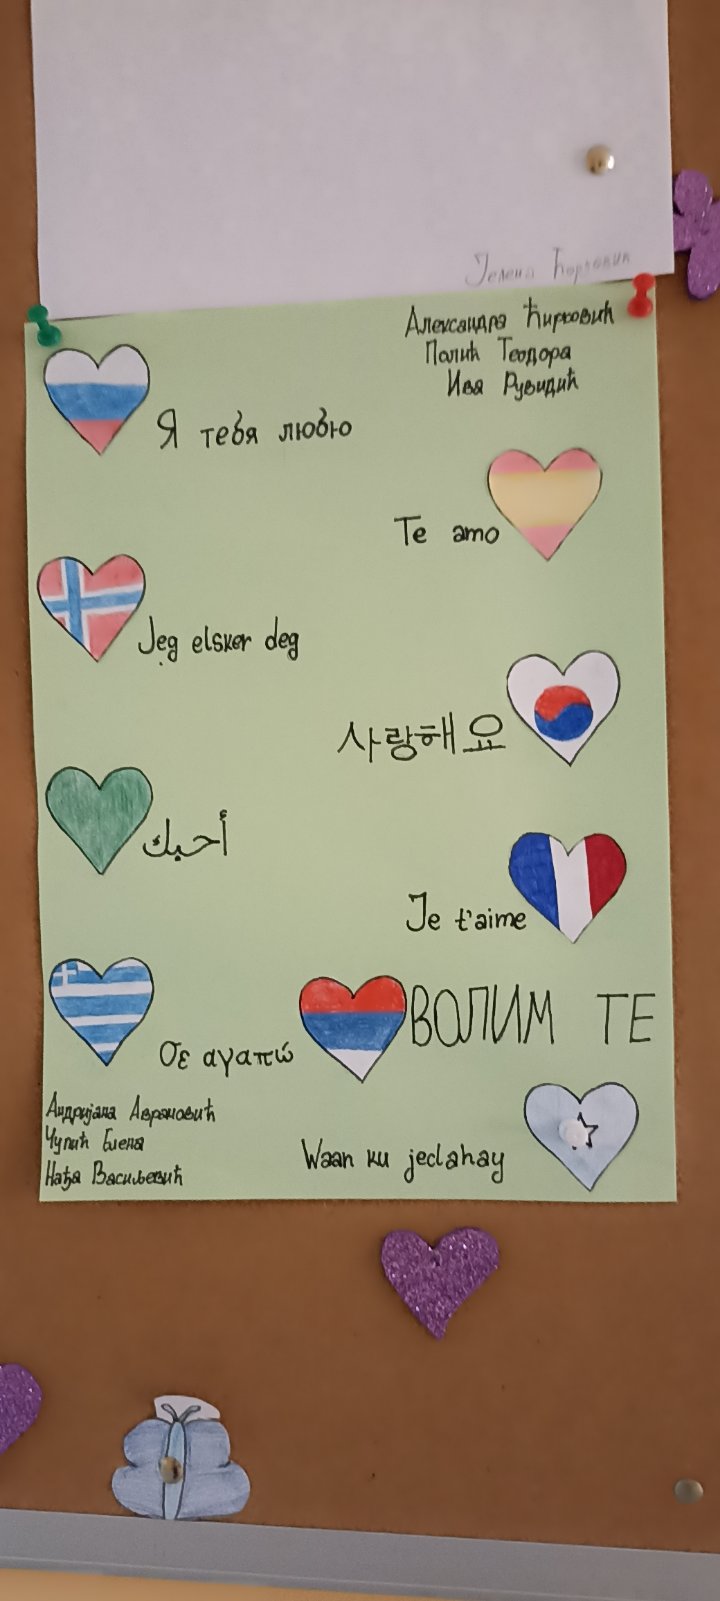 Јелена Ћорковић
Александра Ћирковић
Палић Теодора
Ива Рувидић
Я тебя люблю
Te amo
Jeg elsker deg
사랑해요
أحبك
Je t'aime
Σε αγαπώ
ВОЛИМ ТЕ
Андријана Аврамовић
Чулић Елена
Нађа Васиљевић
Waan ku jeclahay